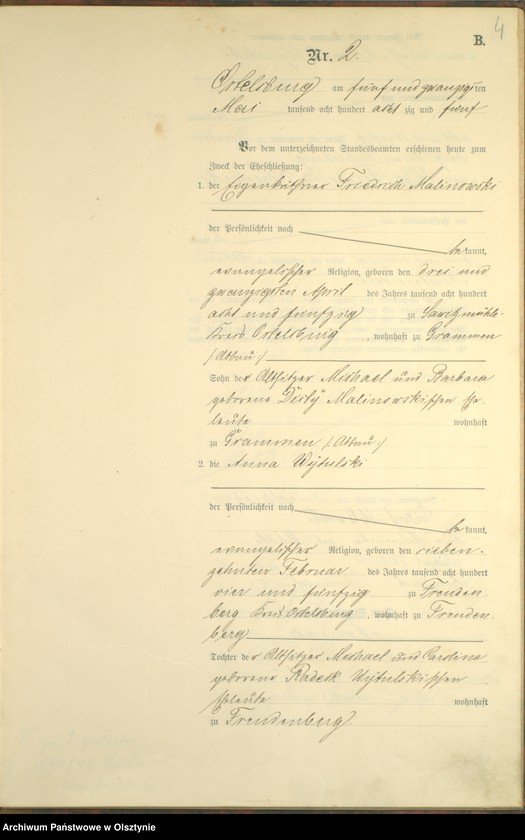 4
B.
Nr. 2.
Ortelsburg am fünf und zwanzigsten
Mai tausend acht hundert acht zig und fünf
Vor dem unterzeichneten Standesbeamten erschienen heute zum
Zweck der Eheschließung:
1. der Eigenkäthner Friedrich Malinowski
der Persönlichkeit nach
bekannt,
evangelischer Religion, geboren den drei und
zwanzigsten April des Jahres tausend acht hundert
acht und fünfzig zu Sawitzmühle
Kreis Ortelsburg, wohnhaft zu Grammen
/:Abbau:/
Sohn der Altsitzer Michael und Barbara
geborene Malinowskischen Ehe-
leute wohnhaft
zu Grammen /:Abbau:/
2. die Anna Wytulski
der Persönlichkeit nach
bekannt,
evangelischer Religion, geboren den sieben-
zehnten Februar des Jahres tausend acht hundert
vier und fünfzig zu Freuden
berg Kreis Ortelsburg, wohnhaft zu Freuden
berg
Tochter der Altsitzer Michael und Carolina
geborene Radeck Wytulskischen
Eheleute wohnhaft
zu Freudenberg.
Archiwum Państwowe w Olsztynie